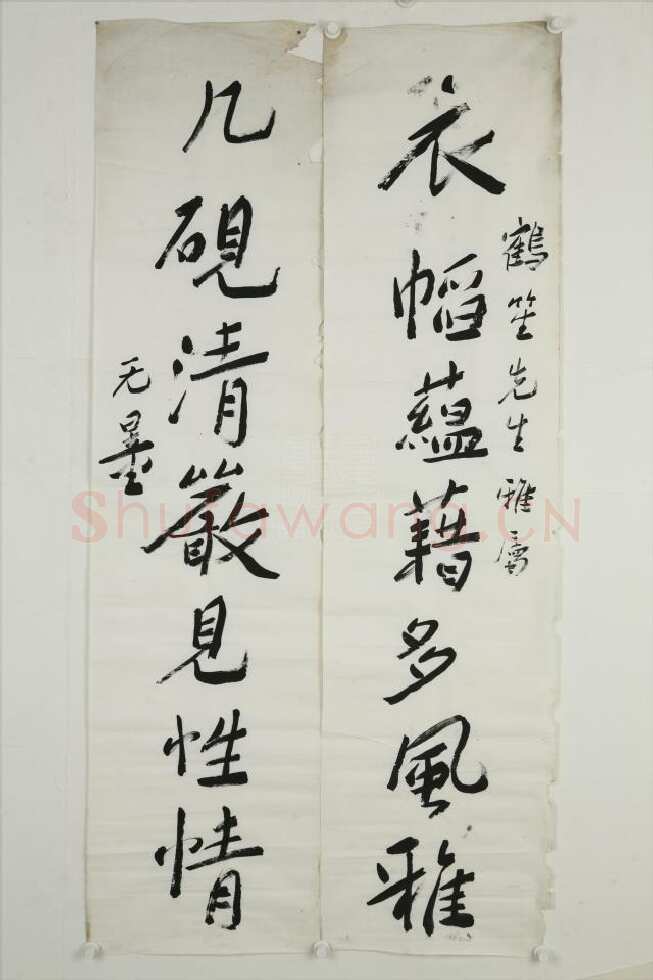 鶴笙先生雅屬
衣幍蘊藉多風雅
几硯清嚴見性情
无量
Shufawang.CN